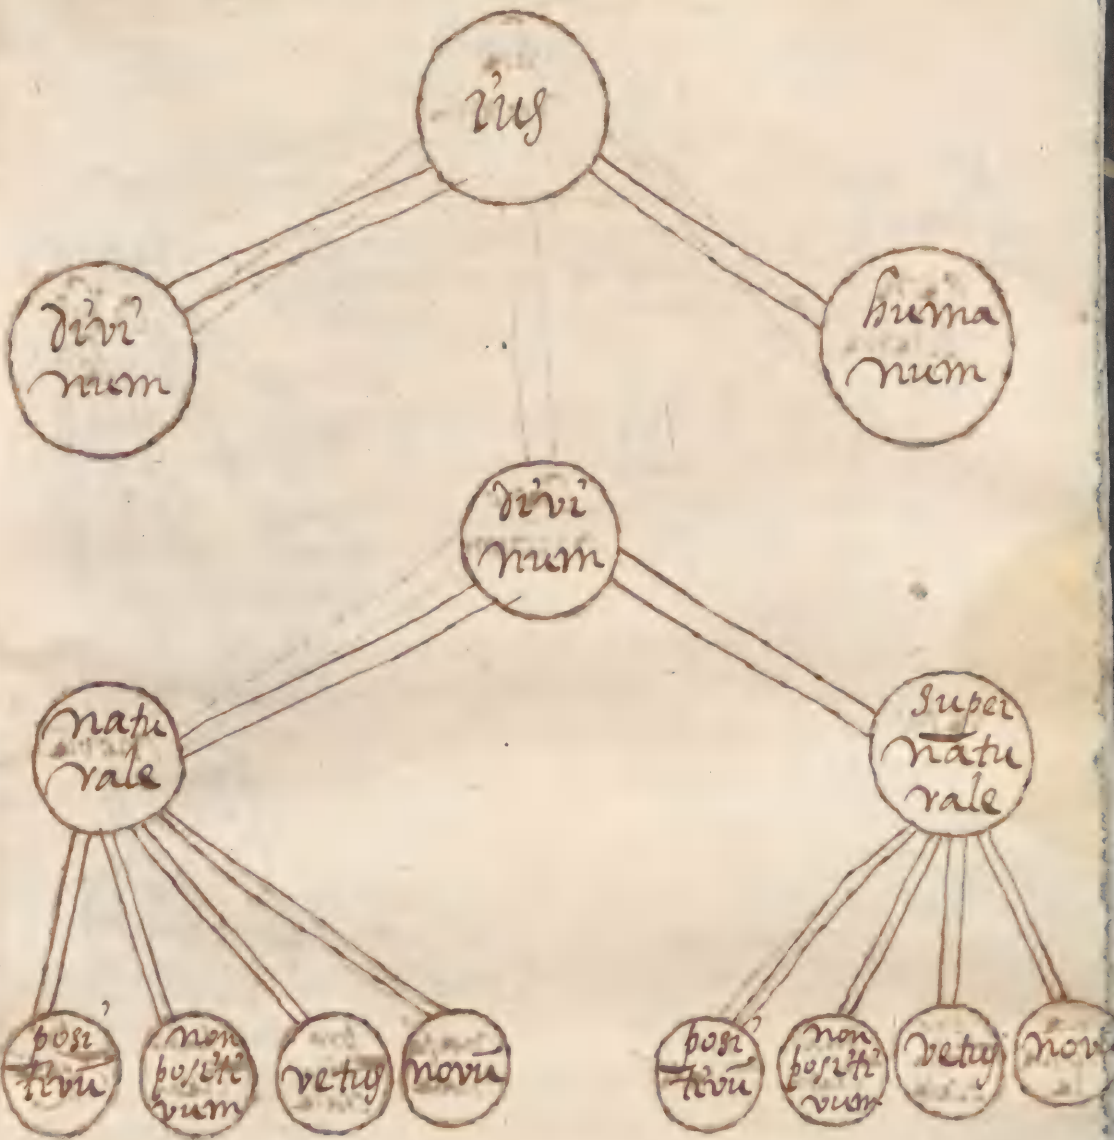 ius
divi
num
huma
num
divi
num
natu
rale
super
natu
rale
posi
tivũ
non
positi
vum
vetus
novũ
posi
tivũ
non
positi
vum
vetus
nov